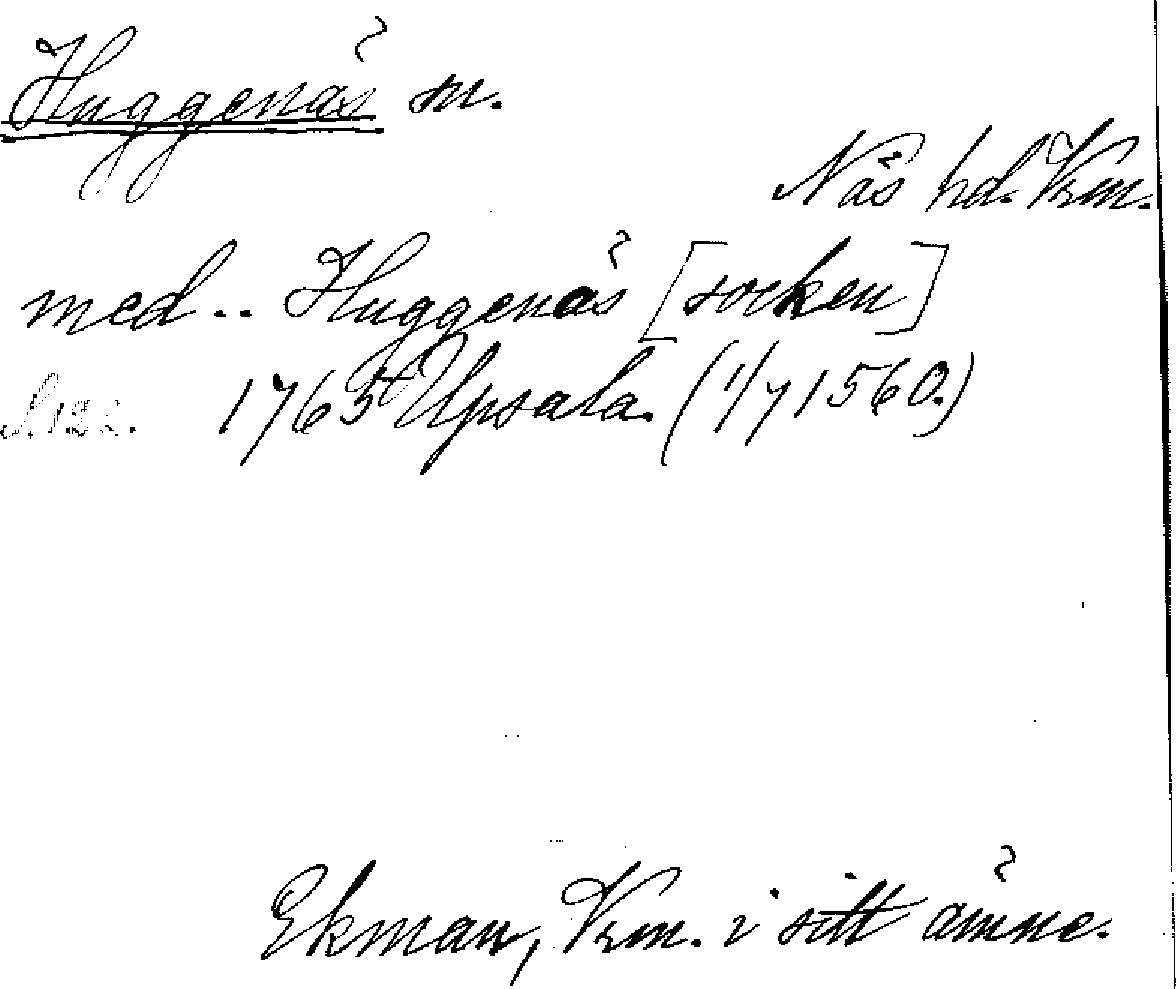 Huggenäs sn.
Näs hd. Vrm.
med.. Huggenäs [socken]
1765 Upsala. (1/7 1560.)
Ekman, Vrm. i sitt ämne.